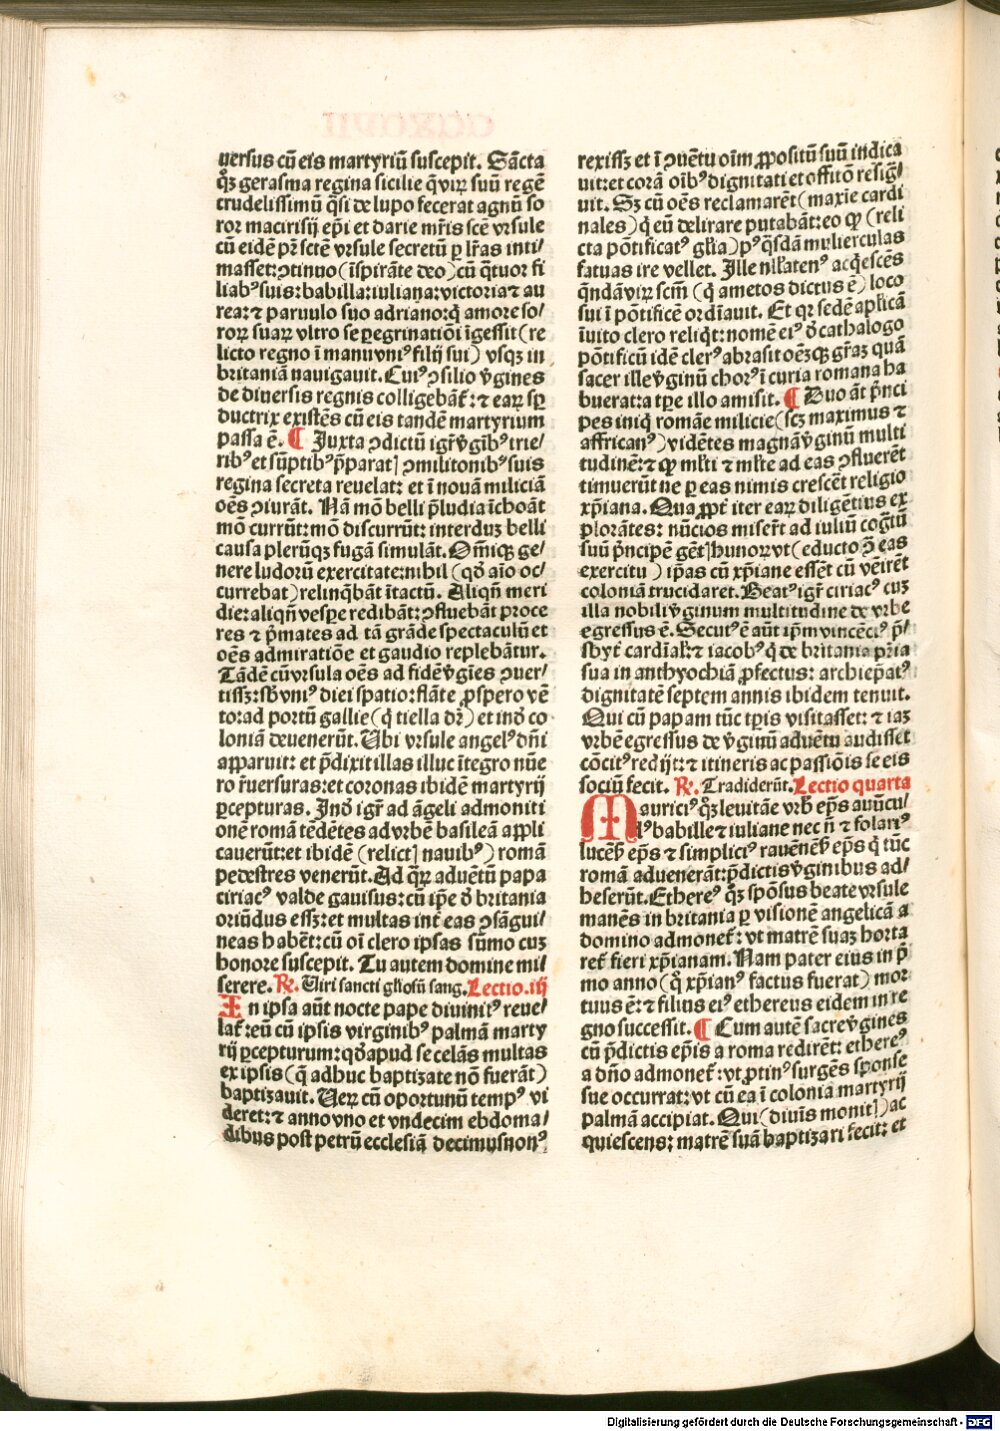 uersus cū eis martyriū suscepit. Sācta
qꝫ gerasma regina sicilie q̄ virꝝ suū regē
crudelissimū q̄si de lupo fecerat agnū so
ror macirisij ep̄i et darie mr̄is scē vrsule
cū eidē pr̄ sctē vrsule secretū ꝑ lr̄as inti/
masset: ꝯtinuo (īspirāte deo) cū q̄tuor fi
liabꝰ suis: babilla: iuliana: victoria ⁊ au
rea: ⁊ paruulo suo adriano: q̄ amore so/
rorꝝ suarꝝ vltro se peregrinatiōi īgessit (re
licto regno ī manu vniꝰ filij sui) vsqꝫ in
britaniā nauigauit. Cuiꝰ ꝯsilio v̄gines
de diuersis regnis colligebāt̄: ⁊ earꝝ sꝑ
ductrix existēs cū eis tandē martyrium
passa ē. ¶ Juxta ꝯdictū igr̄ v̄gībꝰ trie/
ribꝰ et sūptibꝰ p̄parat] ꝯmilitonibꝰ suis
regina secreta reuelat: et ī nouā miliciā
oēs ꝯiurāt. Nā mō belli p̄ludia īchoāt
mō currūt: mō discurrūt: interduꝫ belli
causa plerūqꝫ fugā simulāt. Om̄iqꝫ ge/
nere ludorū exercitate: nihil (qd̄ aīo oc/
currebat) relinq̄bāt ītactū. Aliqn̄ meri
die: aliqn̄ vespe redibāt: ꝯfluebāt proce
res ⁊ p̄mates ad tā grāde spectaculū et
oēs admiratiōe et gaudio replebātur.
Tādē cū vrsula oēs ad fidē v̄gīes ꝯuer/
tissꝫ: sb̄ vniꝰ diei spatio: flāte ꝓspero vē
to: ad portū gallie (q̄ tiella dr̄) et ind̄ co
loniā deuenerūt. Ubi vrsule angelꝰ dn̄i
apparuit: et p̄dixit illas illuc ītegro nūe
ro r̄uersuras: et coronas ibidē martyrij
ꝑcepturas. Ind̄ igr̄ ad āgeli admoniti
onē romā tēdētes ad vrbē basileā appli
cauerūt: et ibidē (relict] nauibꝰ) romā
pedestres venerūt. Ad q̄rꝝ aduētū papa
ciriacꝰ valde gauisus: cū ip̄e d̄ britania
oriūdus essꝫ: et multas int̄ eas ꝯsāgui/
neas habēt: cū oī clero ipsas sūmo cuꝫ
honore suscepit. Tu autem domine mi/
serere. ℟. Uiri sancti glīosū sang. Lectio .iij
In ipsa aūt nocte pape diuinitꝰ reue/
lat̄: eū cū ipsis virginibꝰ palmā marty
rij ꝑcepturum: qd̄ apud se celās multas
ex ipsis (q̄ adhuc baptizate nō fuerāt)
baptizauit. Uerꝝ cū oportunū tempꝰ vi
deret: ⁊ anno vno et vndecim ebdoma/
dibus post petrū ecclesiā decimusnonꝰ
rexissꝫ et ī ꝯuētu oīm ꝓpositū suū indica
uit: et corā oībꝰ dignitati et offitō resiḡ/
uit. Sꝫ cū oēs reclamarēt (maxīe cardi
nales) q̄ eū delirare putabāt: eo qp̄ (reli
cta pōtificatꝰ gl̄ia) pꝰ q̄sdā mulierculas
fatuas ire vellet. Ille nl̄latenꝰ acq̄escēs
q̄ndā virꝝ scm̄ (q̄ ametos dictus ē) loco
sui ī pōtificē ordīauit. Et qꝛ sedē aplicā
īuito clero reliq̄t: nomē eiꝰ d̄ cathalogo
pōtificū idē clerꝰ abrasit oēꝫqꝫ gr̄aꝫ quā
sacer ille v̄ginū chorꝰ ī curia romana ha
buerat: a tp̄e illo amisit. ¶ Duo āt p̄nci
pes iniq̄ romāe milicie (scꝫ maximus ⁊
affricanꝰ) vidētes magnā v̄ginū multi
tudinē: ⁊ qp̄ ml̄ti ⁊ ml̄te ad eas ꝯfluerēt
timuerūt ne ꝑ eas nimis crescēt religio
xp̄iana. Qua ꝓpt̄ iter earꝝ diligētius ex
plorātes: nūcios misert̄ ad iuliū coḡtū
suū p̄ncipē gēt] hunorꝝ vt (educto ꝯ̄ eas
exercitu) ip̄as cū xp̄iane essēt cū vēirēt
coloniā trucidaret. Beatꝰ igr̄ ciriacꝰ cuꝫ
illa nobili v̄ginum multitudine de vrbe
egressus ē. Secutꝰ ē aūt ip̄m vincēciꝰ p̄/
sbyt̄ cardīal]: ⁊ iacobꝰ q̄ de britania pr̄ia
sua in anthyochiā ꝓfectus: archiep̄atꝰ
dignitatē septem annis ibidem tenuit.
Qui cū papam tūc tp̄is visitasset: ⁊ iaꝫ
vrbē egressus de v̄ginū aduētu audisset
cōcitꝰ redijt: ⁊ itineris ac passiōis se eis
sociū fecit. ℟. Tradiderūt. Lectio quarta
Mauriciꝰ qꝫ leuitāe vrb̄ ep̄s auūcu/
lꝰ babille ⁊ iuliane nec n̄ ⁊ folariꝰ
lucēn̄ ep̄s ⁊ simpliciꝰ rauēnēn̄ ep̄s q̄ tūc
romā aduenerāt: p̄dictis v̄ginibus ad/
heserūt. Ethereꝰ qꝫ spōsus beate vrsule
manēs in britania ꝑ visionē angelicā a
domino admonet̄: vt matrē suaꝫ horta
ret̄ fieri xp̄ianam. Nam pater eius in p̄
mo anno (q̄ xp̄ianꝰ factus fuerat) mor
tuus ē: ⁊ filius eiꝰ ethereus eidem in re
gno successit. ¶ Cum autē sacre v̄gines
cū p̄dictis ep̄is a roma redirēt: ethereꝰ
a dn̄o admonet̄: vt ꝓtinꝰ surgēs sponse
sue occurrat: vt cū ea ī colonia martyrij
palmā accipiat. Qui (diuīs monit]) ac
quiescens: matrē suā baptizari fecit: et
Digitalisierung gefördert durch die Deutsche Forschungsgemeinschaft - DFG